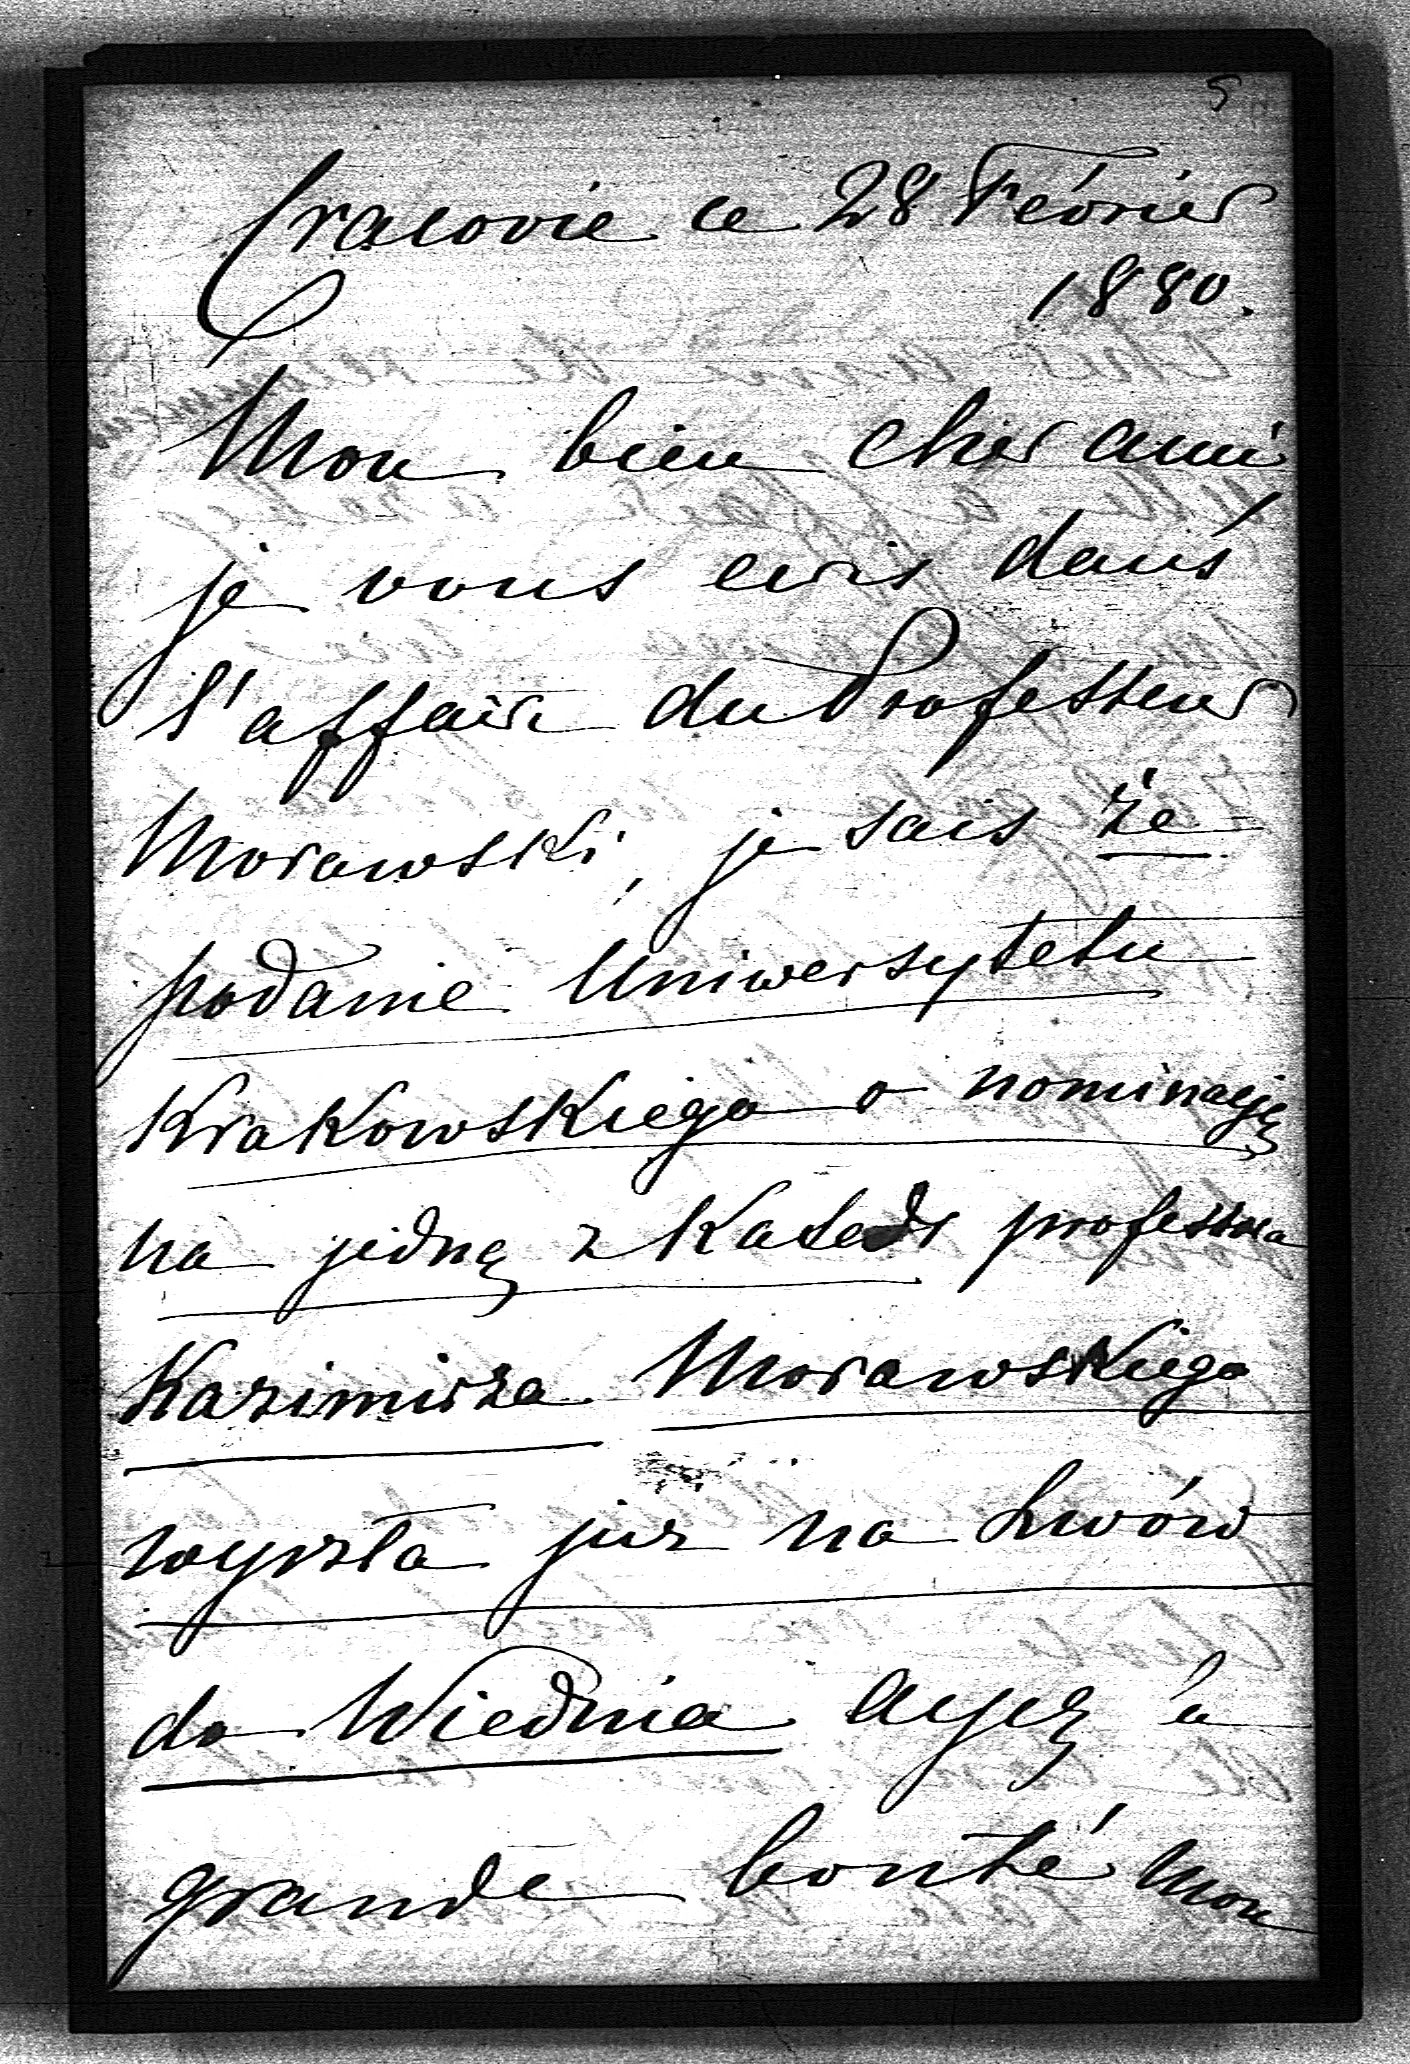 5
Cracovie ce 28 Février
1880.
Mon bien cher ami
je vous ecris dans
l'affaire du Professeur
Morawski, je sais że
podanie Uniwersytetu
Krakowskiego o nominację
na jedną z Katedr professora
Kazimirza Morawskiego
wyszła juz na Lwów
do Wiednia ayez la
grande bonté mon